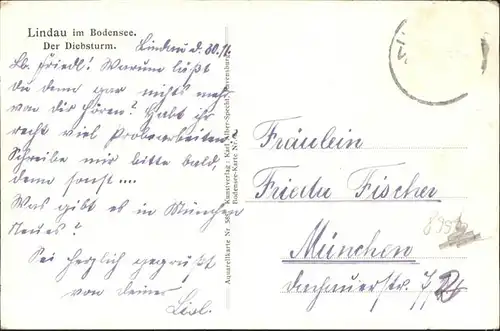 Lindau im Bodensee.
Der Diebsturm.
Lindau d. 30./1.
Lb. Friedl! Warum läßt
Du denn gar nichts mehr
von Dir hören? Habt ihr
recht viel Probearbeiten
Schreibe mir bitte bald,
denn sonst....
Was gibt es in München
Neues?
Sei herzlich gegrüßt
von deiner
Lisl.
Aquarellkarte Nr.
Kunstverlag: Karl
Bodensee-Karte Nr.
Fräulein
Frieda Fischer
München
Dachauerstr.